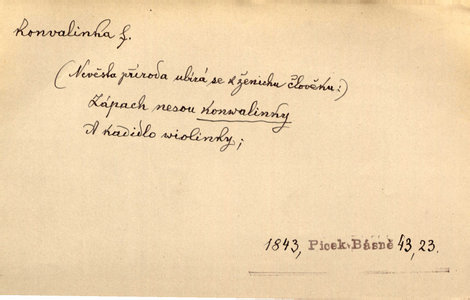 Konvalinka f.
(Nevěsta příroda ubírá se k ženichu člověku:)
Zápach nesou konwalinky
A kadidlo wiolinky;
1843, Picek Básně 43, 23.